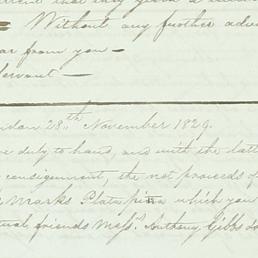 that they
Without any further
from you —
servant —
28th November 1829.
duly to hand, and with the
consignment, the net proceeds of
Marks Plata piña which you
friends Messrs. Anthony Gibbs